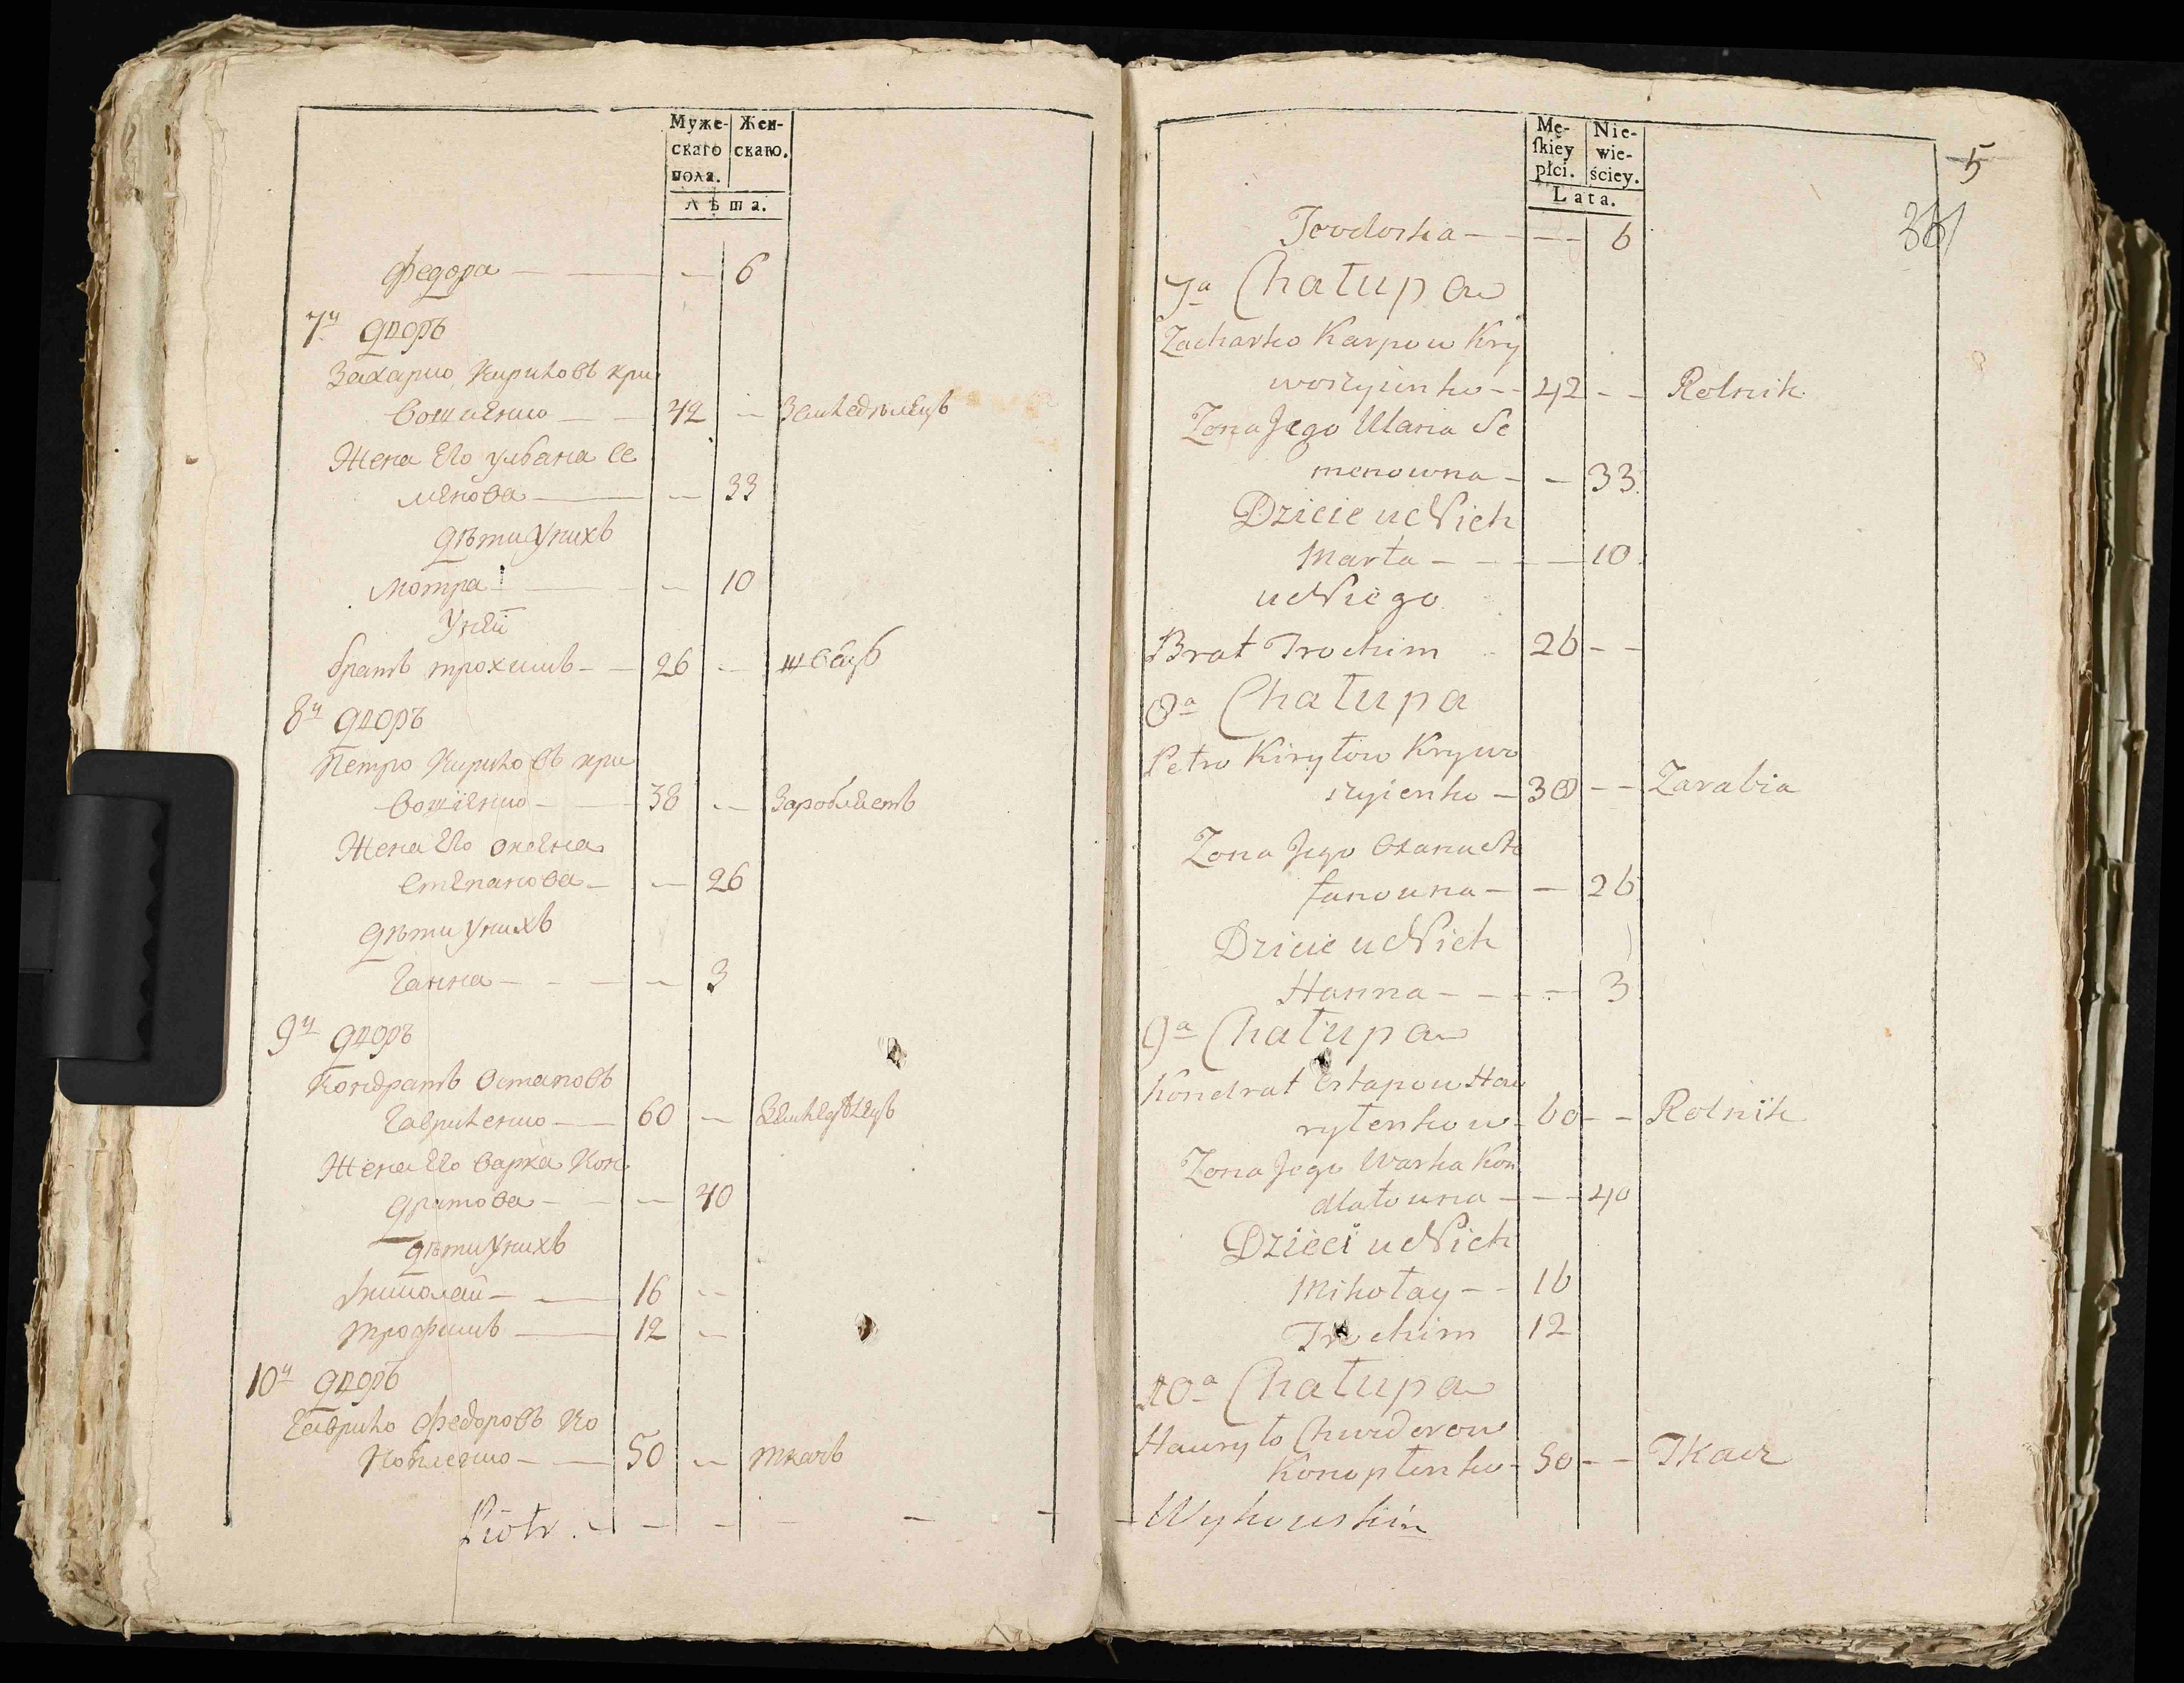 Муже-
скаго
пола.
Жен-
скаго.
лѣта.
Федора — — — 6
7й дворъ
Захарко Кириловъ кри
вошиенко — — 42 — Землєделецъ
Жена Его ульяна се
менова — — 33
дѣти Унихъ
мотра — — 10
Унєй
братъ трохимъ — 26 — швецъ
8й дворъ
Петро Кириловъ кри
вошіенко — 38 — Заробляетъ
Жена Его оксена
степанова — — 26
дѣти Унихъ
Ганна — — — 3
9й дворъ
Кондратъ Остаповъ
Гавриленко — 60 — Землєдѣлецъ
Жена Его варка Кон
дратова — — 40
дѣти Унихъ
Николай — — 16 —
трофимъ — 12 —
10й дворъ
Гаврило Федоровъ Ко
нопленко — 50 — ткачъ
Piotr . — — — — — —
Mę-
ſkiey
płci.
Nie-
wie-
ściey.
Lata.
5
Teodorka — — — 6
7a Chałupa
Zacharko Karpow Kry
woszyienko — 42 — — Rolnik
Zona Jego Ulana Se
menowna — — 33
Dzieie u Nich
Marta — — — 10
u Niego
Brat Trochim 26 — —
8a Chałupa
Petro Kiryłow Krywo
szyienko — 38 — — Zarabia
Zona Jego Oxana Ste
fanowna — — 26
Dzieie u Nich
Hanna — — — 3
9a Chałupa
Kondrat Ostapow Haw
ryłenkow — 60 — — Rolnik
Zona Jego Warka Kon
dlatowna — — 40
Dzieci u Nich
Mikołay — — 16
Trochim 12
10a Chałupa
Hawryło Chwiderow
Konoplenko — 50 — — Tkacz
— Wyhowskin